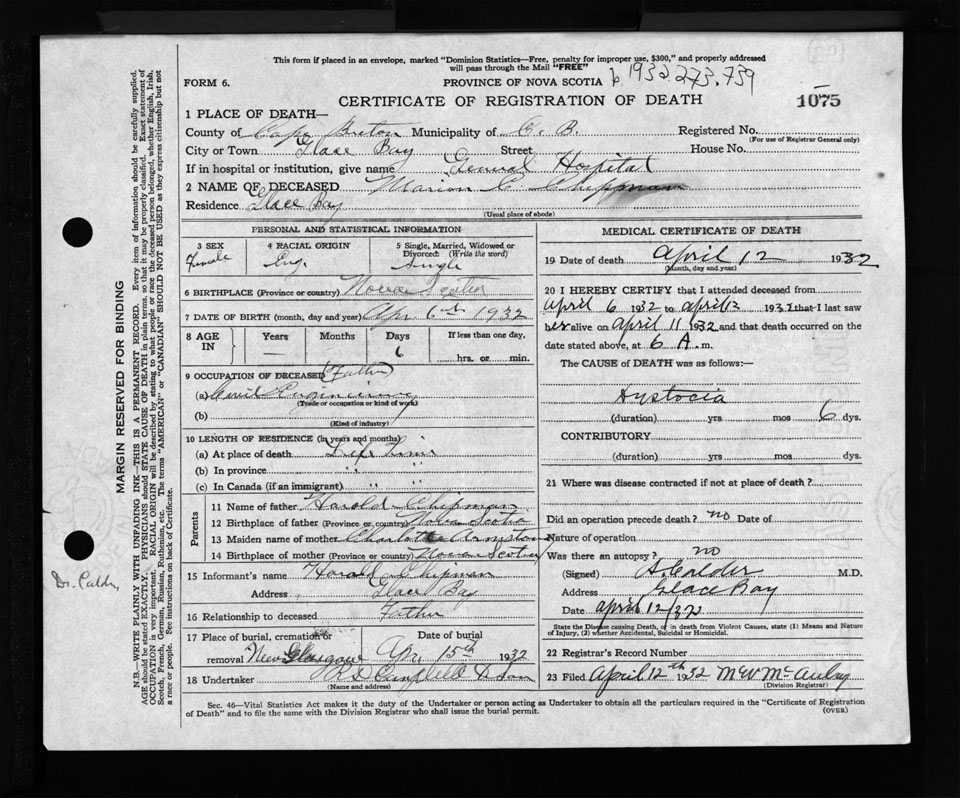 This form if placed in an envelope, marked "Dominion Statistics—Free, penalty for improper use, $300," and properly addressed
will pass through the Mail "FREE"
FORM 6.
PROVINCE OF NOVA SCOTIA 1932 273.739
CERTIFICATE OF REGISTRATION OF DEATH
1075
1 PLACE OF DEATH—
County of Cape Breton Municipality of C. B. Registered No.
(For use of Registrar General only)
City or Town Glace Bay Street House No.
If in hospital or institution, give name General Hospital
2 NAME OF DECEASED Marion C Chipman
Residence Glace Bay
(Usual place of abode)
PERSONAL AND STATISTICAL INFORMATION
3 SEX Female
4 RACIAL ORIGIN Eng.
5 Single, Married, Widowed or Divorced: (Write the word) Single
6 BIRTHPLACE (Province or country) Nova Scotia
7 DATE OF BIRTH (month, day and year) Apr 6th 1932
8 AGE IN
Years — Months Days 6 If less than one day, hrs. or min.
9 OCCUPATION OF DECEASED Father
(a) Civil Engineering
(Trade or occupation or kind of work)
(b)
(Kind of industry)
10 LENGTH OF RESIDENCE (in years and months)
(a) At place of death Life Time
(b) In province " "
(c) In Canada (if an immigrant) " "
Parents
11 Name of father Harold Chipman
12 Birthplace of father (Province or country) Nova Scotia
13 Maiden name of mother Charlotte
14 Birthplace of mother (Province or country) Nova Scotia
15 Informant's name Harold Chipman
Address Glace Bay
16 Relationship to deceased Father
17 Place of burial, cremation or removal New Glasgow
Date of burial Apr 15th 1932
18 Undertaker Campbell & Son
(Name and address)
MEDICAL CERTIFICATE OF DEATH
19 Date of death April 12 1932
(Month, day and year)
20 I HEREBY CERTIFY that I attended deceased from
April 6 1932 to April 12 1932 that I last saw
her alive on April 11 1932 and that death occurred on the
date stated above, at 6 A. m.
The CAUSE OF DEATH was as follows:—
Dystocia
(duration) yrs mos 6 dys.
CONTRIBUTORY
(duration) yrs mos dys.
21 Where was disease contracted if not at place of death?
Did an operation precede death? no Date of
Nature of operation
Was there an autopsy? no
(Signed) A. Calder M.D.
Address Glace Bay
Date April 12/32
State the Disease causing Death, or in death from Violent Causes, state (1) Means and Nature
of Injury, (2) whether Accidental, Suicidal or Homicidal.
22 Registrar's Record Number
23 Filed April 12th 1932
(Division Registrar)
Sec. 46—Vital Statistics Act makes it the duty of the Undertaker or person acting as Undertaker to obtain all the particulars required in the "Certificate of Registration
of Death" and to file the same with the Division Registrar who shall issue the burial permit.
(OVER)
MARGIN RESERVED FOR BINDING
N.B.—WRITE PLAINLY WITH UNFADING INK—THIS IS A PERMANENT RECORD. Every item of information should be carefully supplied.
AGE should be stated EXACTLY. PHYSICIANS should STATE CAUSE OF DEATH in plain terms, so that it may be properly classified. Exact statement of
OCCUPATION is very important. RACIAL ORIGIN will be described by stating to what people or race the deceased person belonged, whether English, Irish,
Scotch, French, German, Russian, Ruthenian, etc. The terms "AMERICAN" or "CANADIAN" SHOULD NOT BE USED as they express citizenship but not
a race or people. See instructions on back of Certificate.